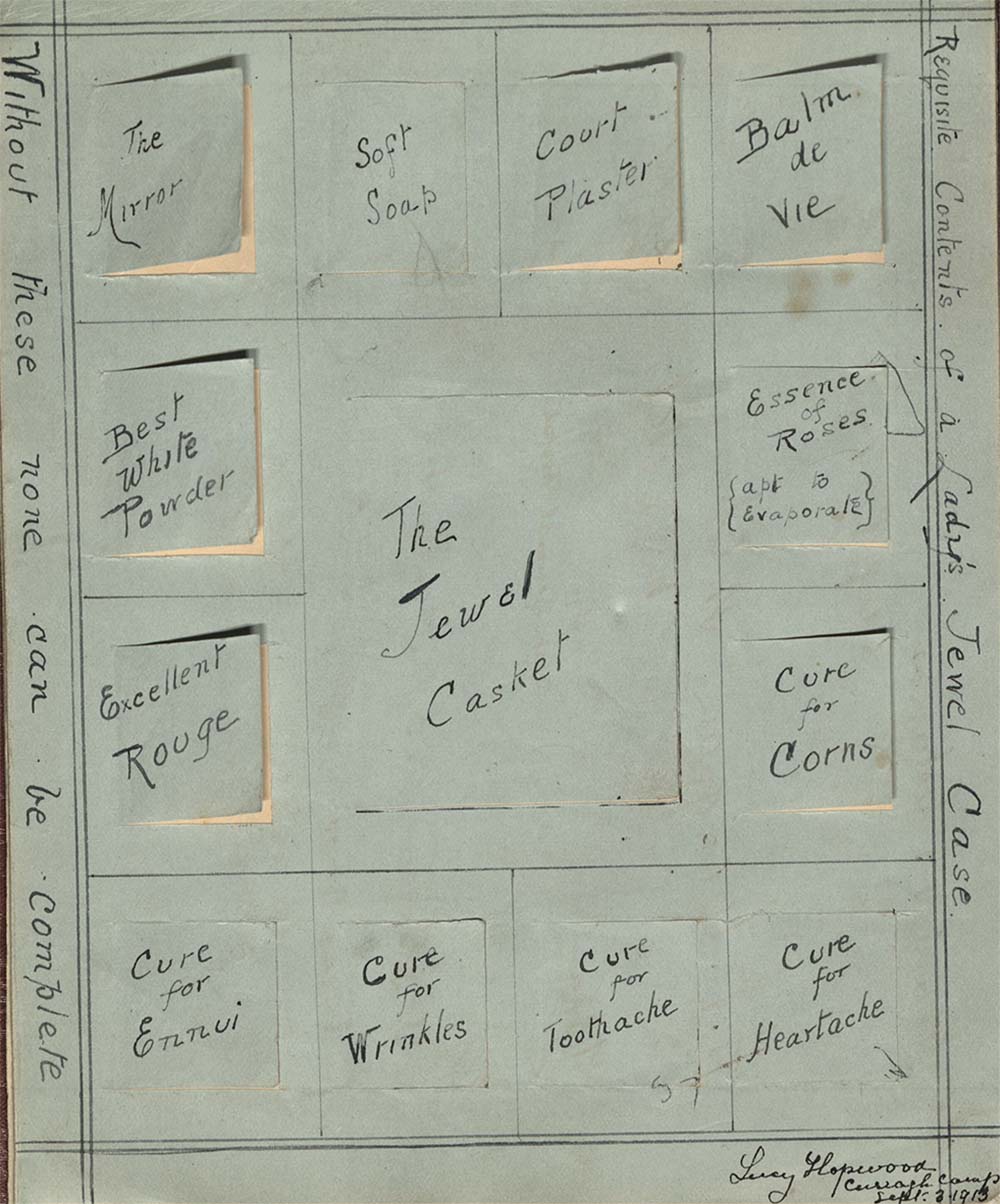 Requisite Contents. of a Lady's. Jewel Case.
Without these none. can. be. complete
The
Mirror
Soft
Soap
Court
Plaster
Balm
de
Vie
Best
White
Powder
The
Jewel
Casket
Essence.
of
Roses.
{apt to
Evaporate}
Excellent
Rouge
Cure
for
Corns
Cure
for
Ennui
Cure
for
Wrinkles
Cure
for
Toothache
Cure
for
Heartache
Lucy Hopwood
Curragh Camp
Sept. 3. 1913